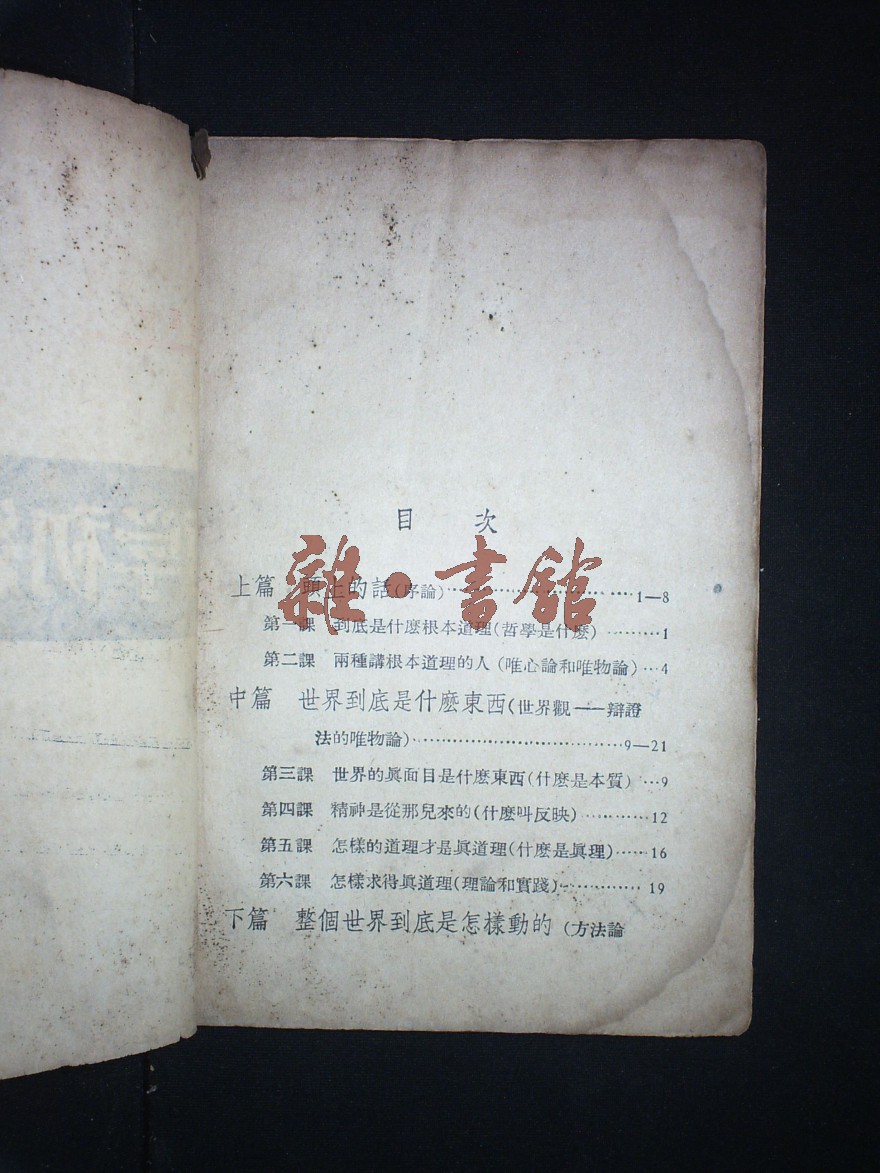 目 次
上篇 頭上的話(序論)……………………1—8
第一課 到底是什麼根本道理(哲學是什麽)………1
第二課 兩種講根本道理的人(唯心論和唯物論)…4
中篇 世界到底是什麼東西(世界觀——辯證
法的唯物論)………………………………9—21
第三課 世界的眞面目是什麽東西(什麽是本質)…9
第四課 精神是從那兒來的(什麽叫反映)…………12
第五課 怎樣的道理才是眞道理(什麽是眞理)……16
第六課 怎樣求得眞道理(理論和實踐)……………19
下篇 整個世界到底是怎樣動的(方法論
雜·書館